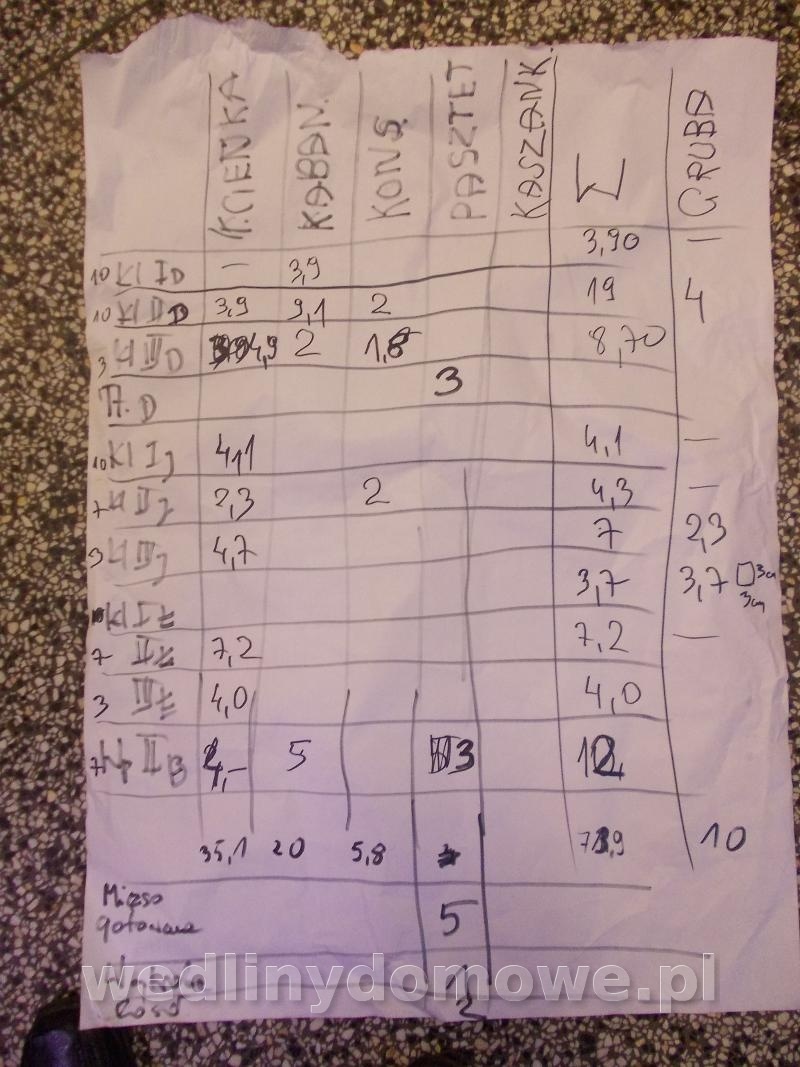 K.CIENKA KABAN. KONS. PASZTET KASZANK. Σ GRUBA
10 Kl I D — 3,9 3,90 —
10 Kl II D 3,9 9,1 2 19 4
3 Kl III D 4,9 2 1,8 8,70
Tł. D 3
10 Kl I j 4,1 4,1 —
7 Kl II j 2,3 2 4,3 —
3 Kl III j 4,7 7 2,3
Kl I 3,7 3,7 3cm
3cm
7 II 7,2 7,2 —
3 III 4,0 4,0
7 II B 4,- 5 3 12
35,1 20 5,8 10
Mięso
gotowane 5
1
2
wedlinydomowe.pl